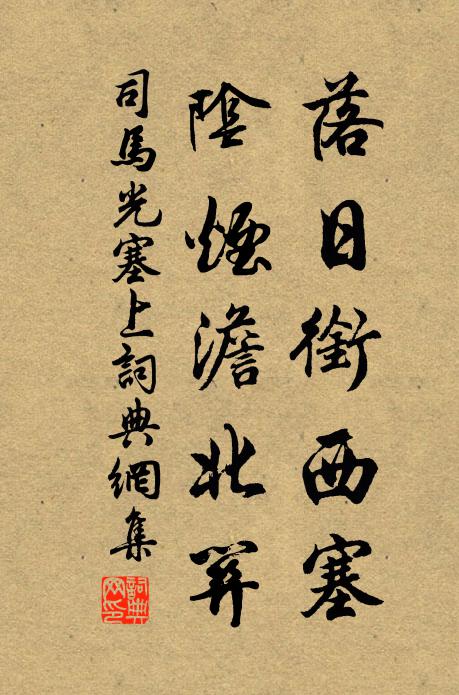 落日銜西塞
陰煙澹北
司馬光塞上詞典網集
詞典
网印